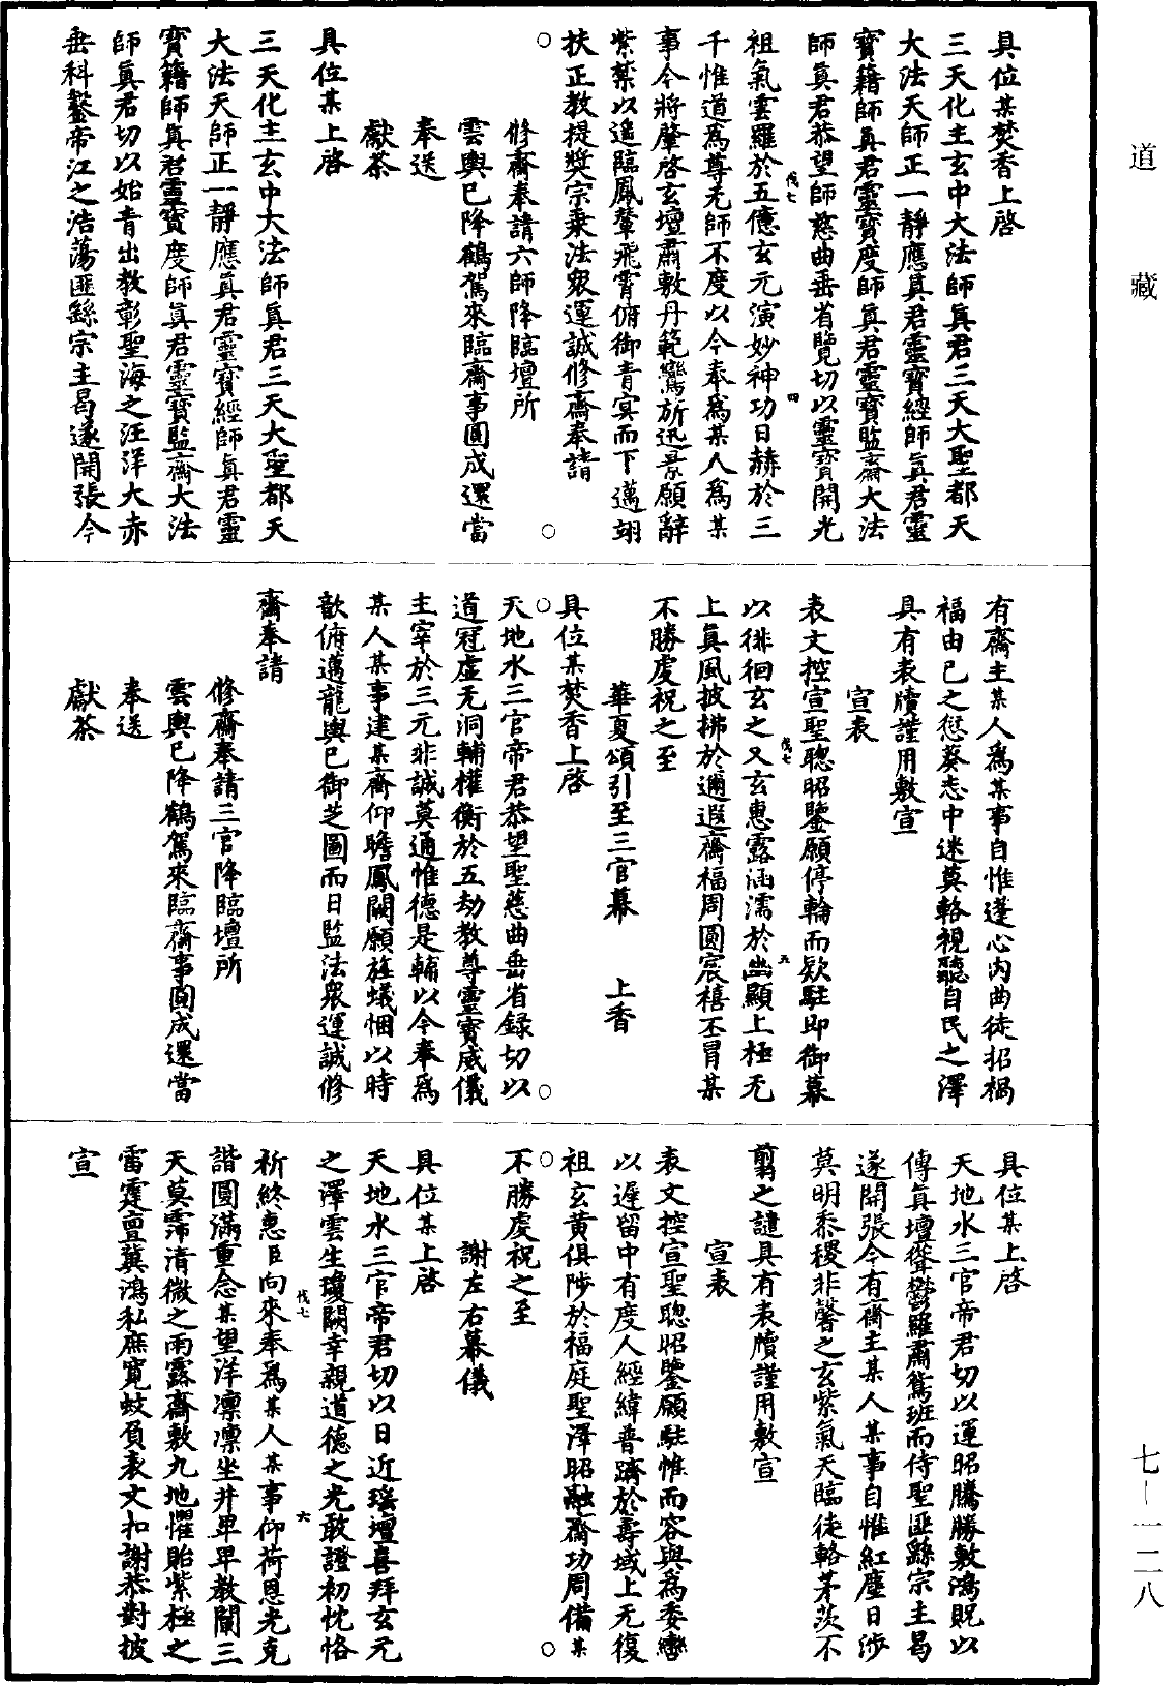 道藏
具位某焚香上啓
三天化主玄中大法師真君三天大聖都天
大法天師正一靜應真君靈寶經師真君靈
寶籍師真君靈寶度師真君靈寶監齋大法
師真君恭望師慈曲垂省覽切以靈寶開光
祖氣雲羅於五億玄元演妙神功日赫於三
千惟道爲尊无師不度以今奉爲某人爲某
事今將肇啓玄壇肅敷丹範鸞旂迅景願辭
紫禁以遥臨鳳輦飛霄俯御青冥而下邁翊
扶正教提獎宗乘法衆運誠修齋奉請
○ ○
修齋奉請六師降臨壇所
雲輿已降鶴駕來臨齋事圓成還當
奉送
獻茶
具位某上啓
三天化主玄中大法師真君三天大聖都天
大法天師正一靜應真君靈寶經師真君靈
寶籍師真君靈寶度師真君靈寶監齋大法
師真君切以始青出教彰聖海之汪洋大赤
垂科鑿帝江之浩蕩匪繇宗主曷遂開張今
有齋主某人爲某事自惟蓬心内曲徒招禍
福由己之愆葵志中迷莫輅視聽自民之澤
具有表牘謹用敷宣
宣表
表文控宣聖聰昭鑒願停輪而欵駐即御幕
以徘徊玄之又玄惠露涵濡於幽顯上極无
上真風披拂於邇遐齋福周圓宸禧丕冒某
不勝虔祝之至
華夏頌引至三官幕 上香
具位某焚香上啓
○ ○
天地水三官帝君恭望聖慈曲垂省録切以
道冠虛无洞輔權衡於五劫教尊靈寶威儀
主宰於三元非誠莫通惟德是輔以今奉爲
某人某事建某齋仰瞻鳳闕願旌蟻悃以時
歆俯邁龍輿已御芝圖而日監法衆運誠修
齋奉請
修齋奉請三官降臨壇所
雲輿已降鶴駕來臨齋事圓成還當
奉送
獻茶
具位某上啓
天地水三官帝君切以運昭騰勝敷鴻貺以
傳真壇聳鬱羅肅鵉班而侍聖匪繇宗主曷
遂開張今有齋主某人某事自惟紅塵日涉
莫明黍稷非馨之玄紫氣天臨徒輅茅茨不
翦之譴具有表牘謹用敷宣
宣表
表文控宣聖聰昭鑒願駐帷而容與爲委轡
以遲留中有度人經緯普躋於壽域上无復
祖玄黄俱陟於福庭聖澤昭融齋功周備某
○ ○
不勝虔祝之至
謝左右幕儀
具位某上啓
天地水三官帝君切以日近瑶壇喜拜玄元
之澤雲生瓊闕幸親道德之光敢證初忱恪
祈終惠臣向來奉爲某人某事仰荷恩光克
諧圓滿重念某望洋凛凛坐井卑卑教闡三
天莫霈清微之雨露齋敷九地懼貽紫極之
雷霆亶冀鴻私庶寛蚊負表文扣謝恭對披
宣
伐七 四
伐七 五
伐七 六
七—一二八